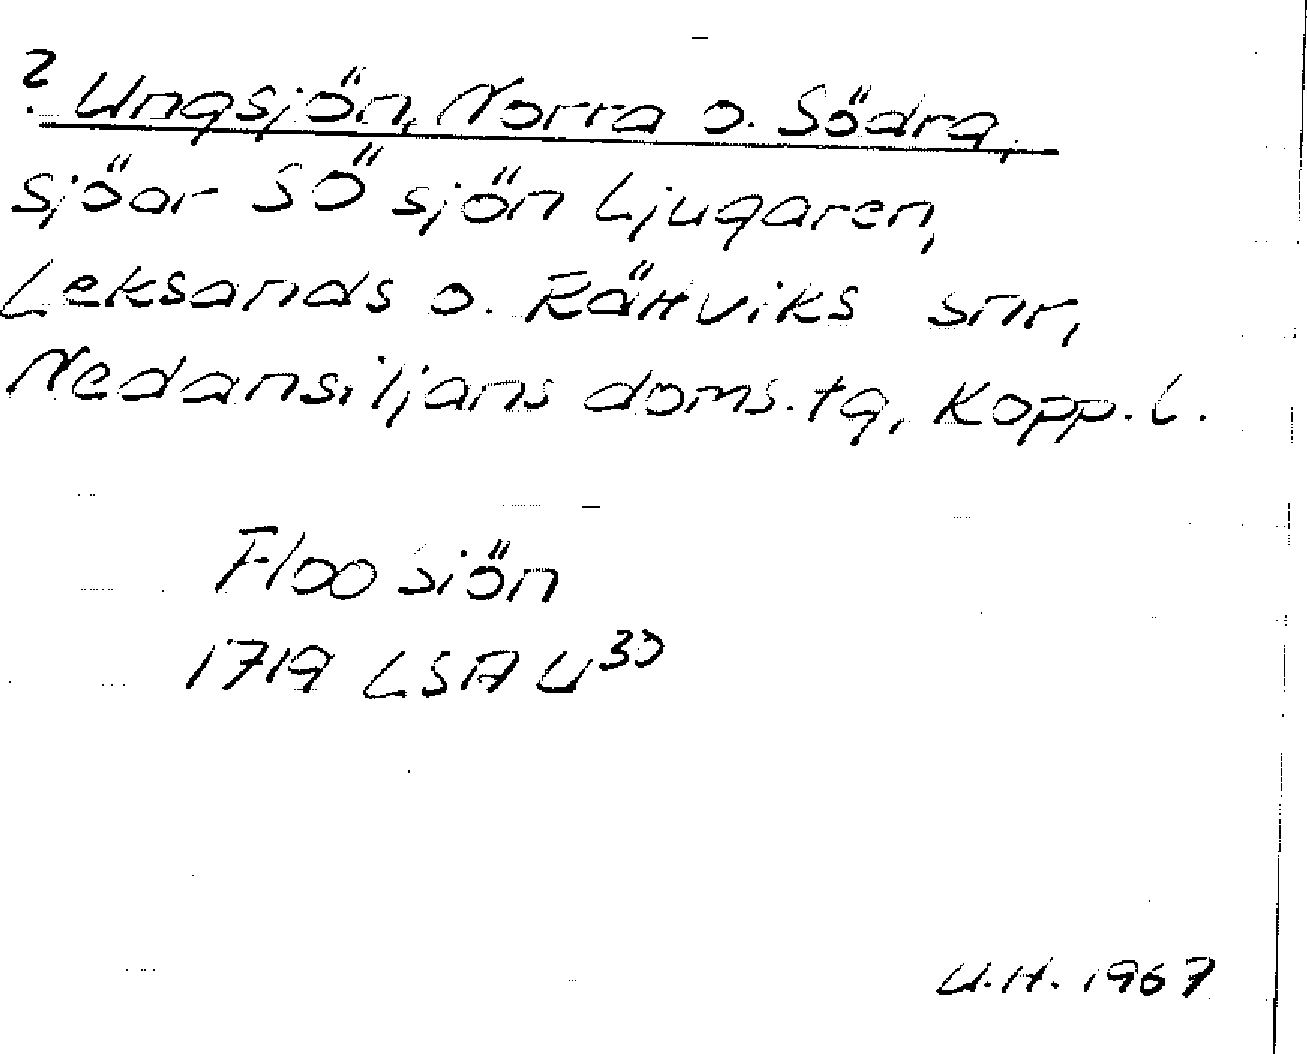 ? Ungsjön, Norra o. Södra,
sjöar SÖ sjön Ljugaren,
Leksands o. Rättviks snr,
Nedansiljans doms.tg, Kopp. l.
Floo siön
1719 LSA U³⁰
U.H. 1967